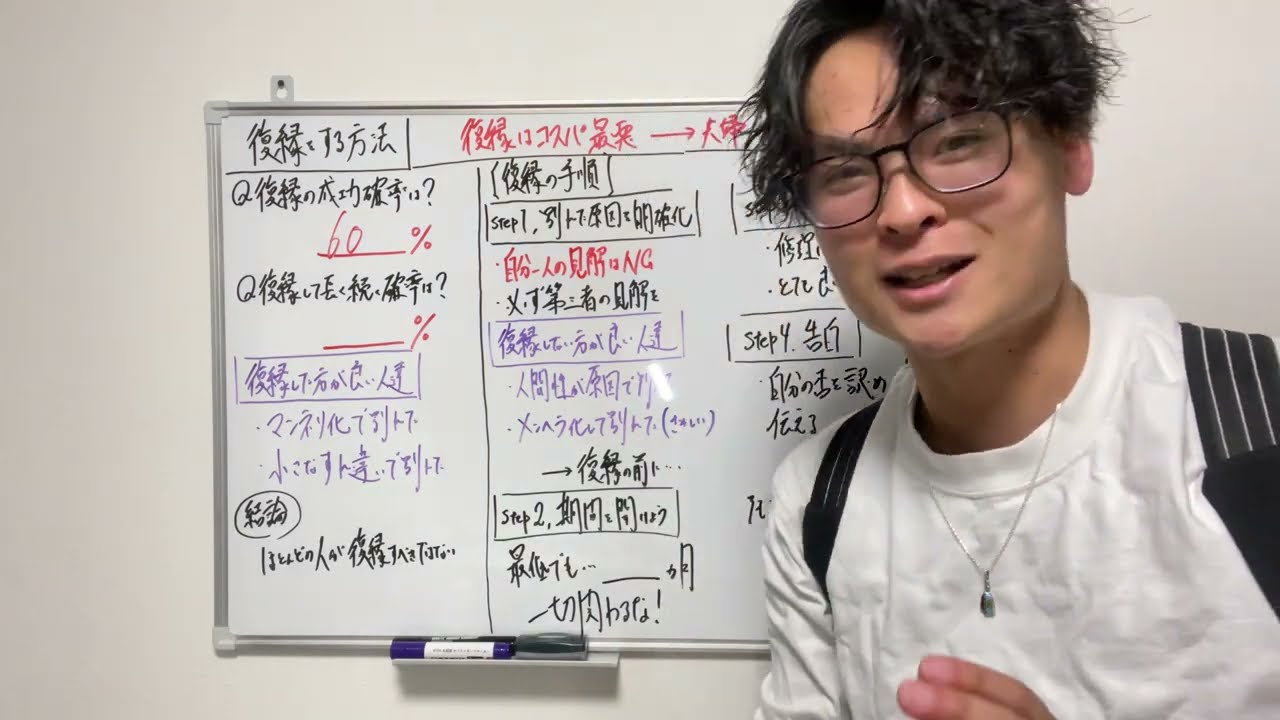 復縁をする方法
復縁はコスパ最悪 → 夫婦
Q 復縁の成功確率は?
60%
Q 復縁して長く続く確率は?
%
復縁した方が良い人達
・マンネリ化で別れた
・小さなすれ違いで別れた
結論
ほとんどの人が復縁すべきではない
復縁の手順
Step1, 別れた原因を明確化
・自分一人の見解はNG
・必ず第三者の見解を
復縁しない方が良い人達
・人間性が原因で別れ
・メンヘラ化して別れた(きれい)
→ 復縁の前に…
Step2, 期間を開けよう
最低でも… ヶ月
一切関わるな!
・修理
・とても良
Step4, 告白
・自分の否を認め
伝える